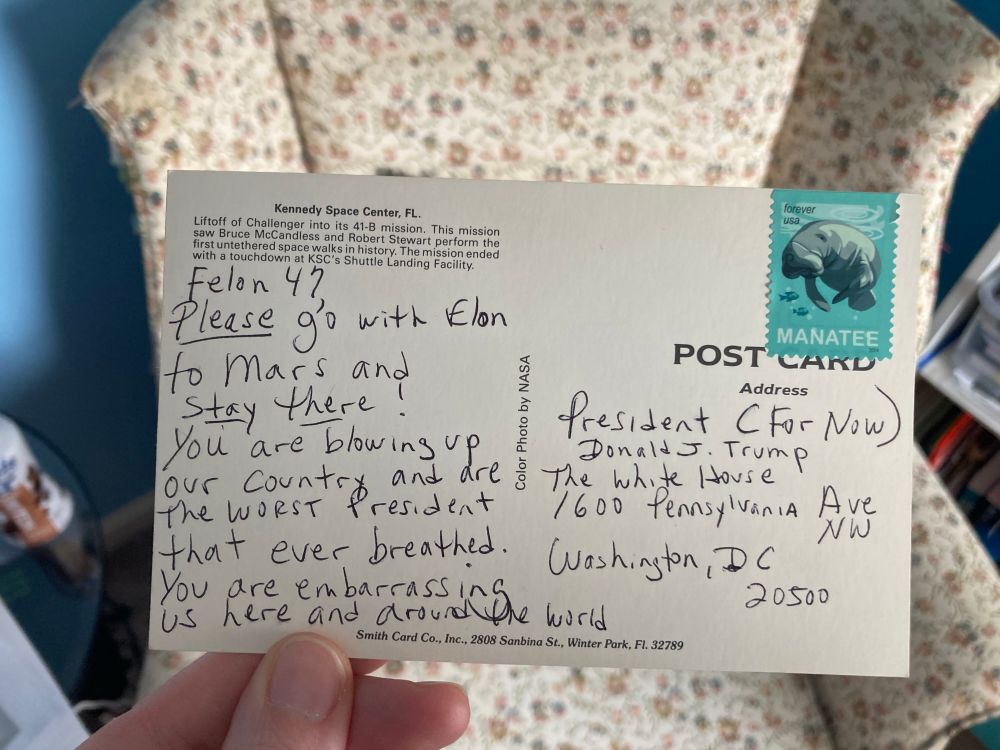 Kennedy Space Center, FL.
Liftoff of Challenger into its 41-B mission. This mission
saw Bruce McCandless and Robert Stewart perform the
first untethered space walks in history. The mission ended
with a touchdown at KSC's Shuttle Landing Facility.
Felon 47,
Please go with Elon
to Mars and
stay there!
You are blowing up
our country and are
the WORST President
that ever breathed.
You are embarrassing
us here and around the world
Color Photo by NASA
forever
usa
MANATEE
POST CARD
Address
President (For Now)
Donald J. Trump
The White House
1600 Pennsylvania Ave
NW
Washington, DC
20500
Smith Card Co., Inc., 2808 Sanbina St., Winter Park, Fl. 32789